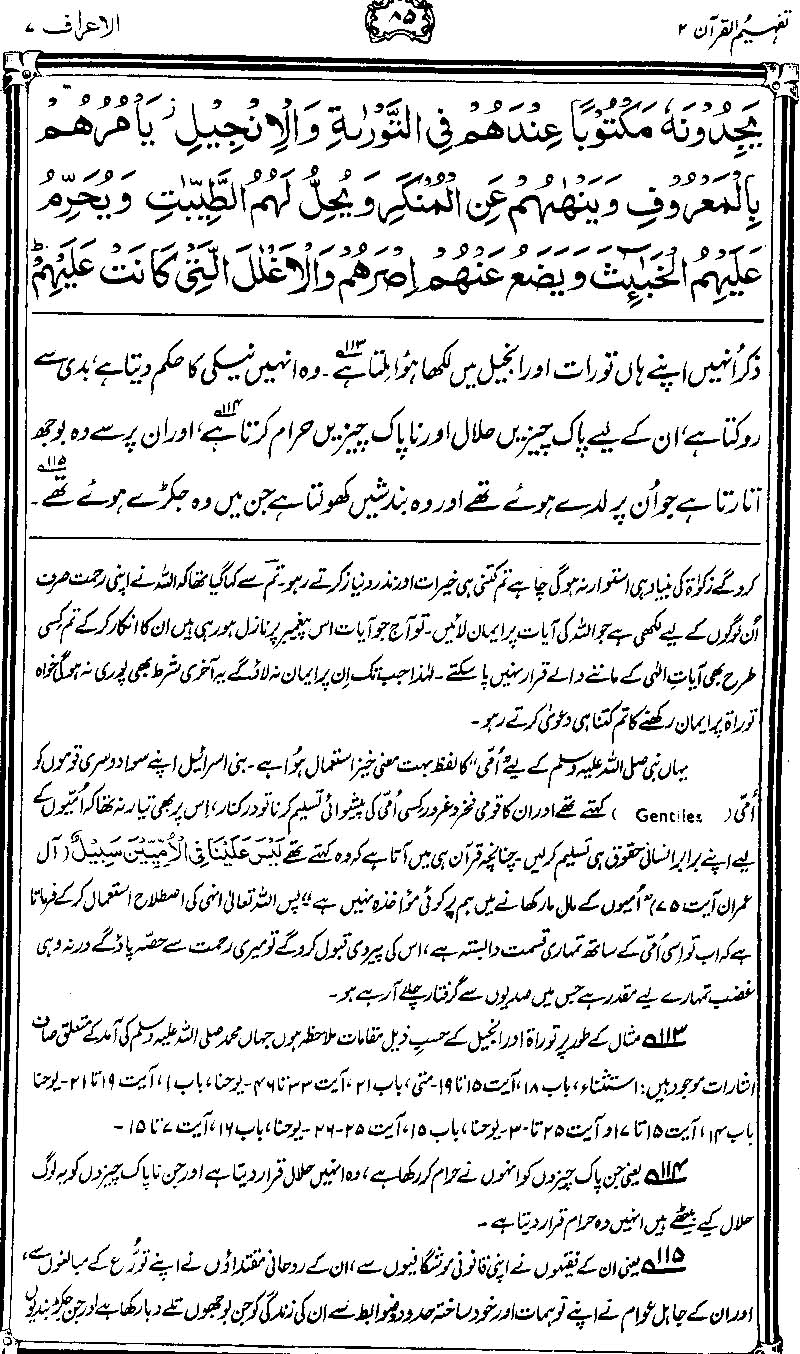 تفہیم القرآن ۲ ۸۵ الاعراف ۷
يَجِدُوْنَهٗ مَكْتُوْبًا عِنْدَهُمْ فِى التَّوْرٰىةِ وَالْاِنْجِيْلِ يَاْمُرُهُمْ
بِالْمَعْرُوْفِ وَيَنْهٰىهُمْ عَنِ الْمُنْكَرِ وَيُحِلُّ لَهُمُ الطَّيِّبٰتِ وَيُحَرِّمُ
عَلَيْهِمُ الْخَبٰٓئِثَ وَيَضَعُ عَنْهُمْ اِصْرَهُمْ وَالْاَغْلٰلَ الَّتِىْ كَانَتْ عَلَيْهِمْ ؕ
ذکر اُنہیں اپنے ہاں تورات اور انجیل میں لکھا ہوا ملتا ہے۱۱۳۔ وہ انہیں نیکی کا حکم دیتا ہے، بدی سے
روکتا ہے، ان کے لیے پاک چیزیں حلال اور ناپاک چیزیں حرام کرتا ہے۱۱۴، اور ان پر سے وہ بوجھ
اُتارتا ہے جو اُن پر لدے ہوئے تھے اور وہ بندشیں کھولتا ہے جن میں وہ جکڑے ہوئے تھے۱۱۵۔
کرو گے زکوٰۃ کی بنیاد ہی استوار نہ ہوگی چاہے تم کتنی ہی خیرات اور نذر و نیاز کرتے رہو۔ تم سے کہا گیا تھا کہ اللہ نے اپنی رحمت صرف
اُن لوگوں کے لیے لکھی ہے جو اللہ کی آیات پر ایمان لائیں۔ تو آج جو آیات اس پیغمبر پر نازل ہو رہی ہیں ان کا انکار کر کے تم کسی
طرح بھی آیاتِ الٰہی کے ماننے والے قرار نہیں پا سکتے۔ لہٰذا جب تک اِن پر ایمان نہ لاؤ گے یہ آخری شرط بھی پوری نہ ہوگی خواہ
توراۃ پر ایمان رکھنے کا تم کتنا ہی دعویٰ کرتے رہو۔
یہاں نبی صلی اللہ علیہ وسلم کے لیے ”اُمّی“ کا لفظ بہت معنی خیز استعمال ہوا ہے۔ بنی اسرائیل اپنے سوا دوسری قوموں کو
اُمّی ( Gentiles ) کہتے تھے اور ان کا قومی فخر و غرور کسی اُمّی کی پیشوائی تسلیم کرنا تو درکنار، اِس پر بھی تیار نہ تھا کہ اُمّیوں کے
لیے اپنے برابر انسانی حقوق ہی تسلیم کر لیں۔ چنانچہ قرآن ہی میں آتا ہے کہ وہ کہتے تھے لَيْسَ عَلَيْنَا فِى الْاُمِّيّٖنَ سَبِيْلٌ (آل
عمران آیت ۷۵) ”اُمیوں کے مال مار کھانے میں ہم پر کوئی مواخذہ نہیں ہے“ پس اللہ تعالیٰ انہی کی اصطلاح استعمال کر کے فرماتا
ہے کہ اب تو اِسی اُمّی کے ساتھ تمہاری قسمت وابستہ ہے، اس کی پیروی قبول کرو گے تو میری رحمت سے حصّہ پاؤ گے ورنہ وہی
غضب تمہارے لیے مقدر ہے جس میں صدیوں سے گرفتار چلے آ رہے ہو۔
۱۱۳ مثال کے طور پر توراۃ اور انجیل کے حسبِ ذیل مقامات ملاحظہ ہوں جہاں محمد صلی اللہ علیہ وسلم کی آمد کے متعلق صاف
اشارات موجود ہیں: استثناء، باب ۱۸، آیت ۱۵ تا ۱۹۔ متی، باب ۲۱، آیت ۳۳ تا ۴۶۔ یوحنا، باب ۱، آیت ۱۹ تا ۲۱۔ یوحنا
باب ۱۴، آیت ۱۵ تا ۱۷ و آیت ۲۵ تا ۳۰۔ یوحنا، باب ۱۵، آیت ۲۵-۲۶۔ یوحنا، باب ۱۶، آیت ۷ تا ۱۵۔
۱۱۴ یعنی جن پاک چیزوں کو انہوں نے حرام کر رکھا ہے، وہ انہیں حلال قرار دیتا ہے اور جن ناپاک چیزوں کو یہ لوگ
حلال کیے بیٹھے ہیں انہیں وہ حرام قرار دیتا ہے۔
۱۱۵ یعنی ان کے فقیہوں نے اپنی قانونی موشگافیوں سے، ان کے روحانی مقتداؤں نے اپنے تورُّع کے مبالغوں سے،
اور ان کے جاہل عوام نے اپنے توہمات اور خود ساختہ حدود و ضوابط سے ان کی زندگی کو جن بوجھوں تلے دبا رکھا ہے اور جن جکڑ بندیوں